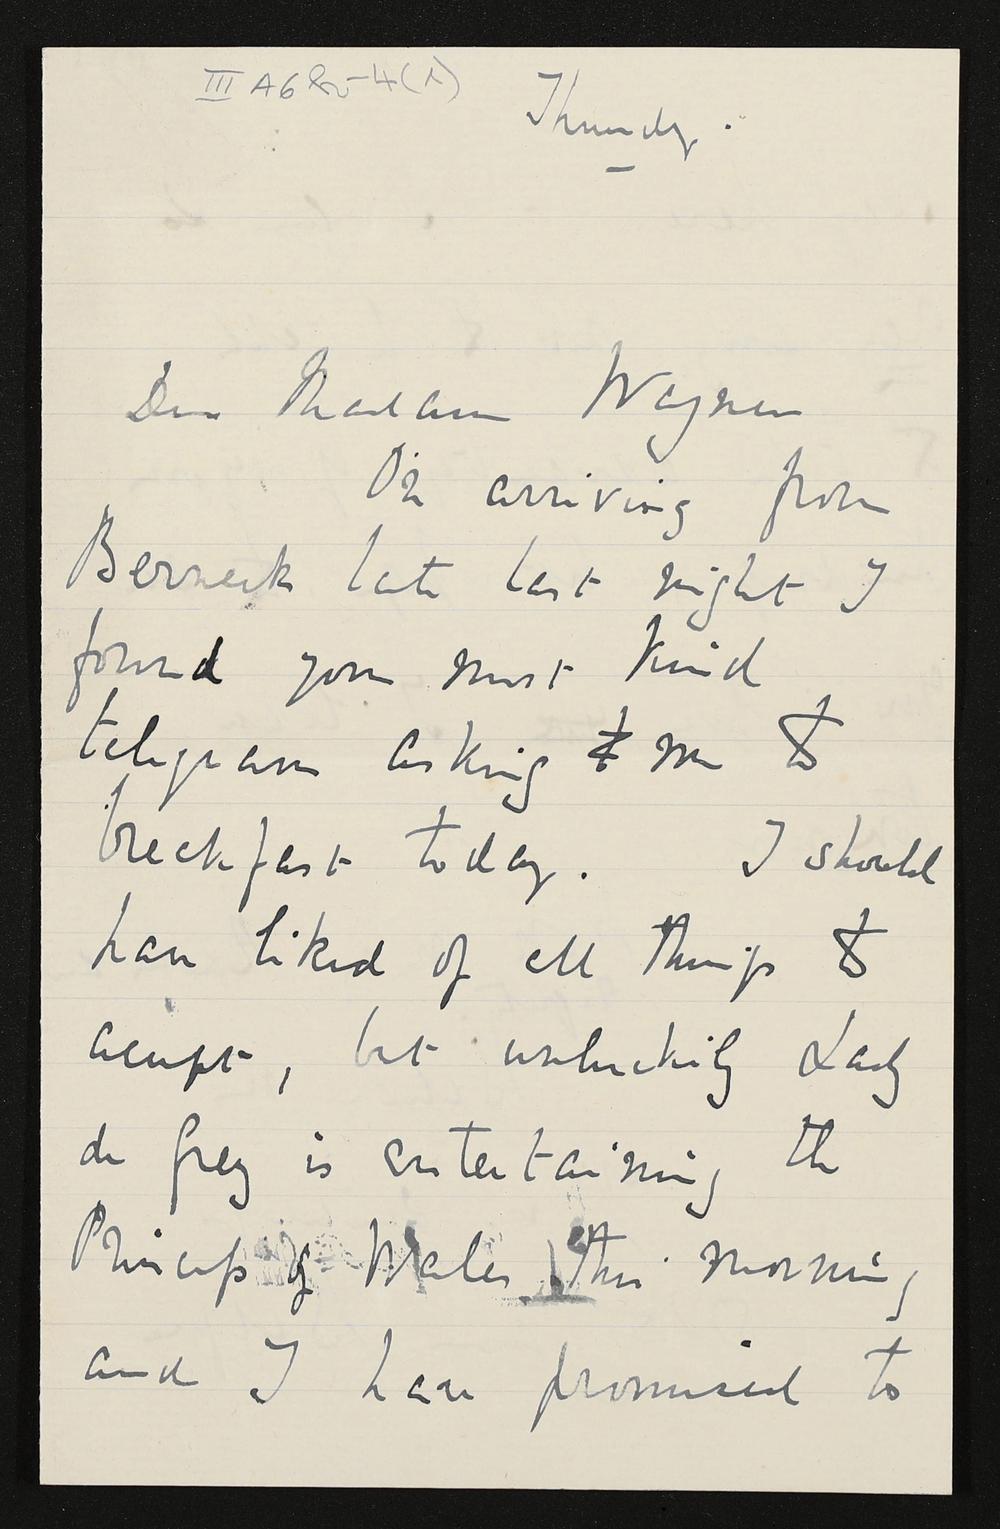 III A6 4(1)
Thursday.
Dear Madam Wagner
On arriving from
Berneck late last night I
found your most kind
telegram asking me to
breakfast today. I should
have liked of all things to
accept, but unluckily Lady
de Grey is entertaining the
Princess of Wales this morning
and I have promised to